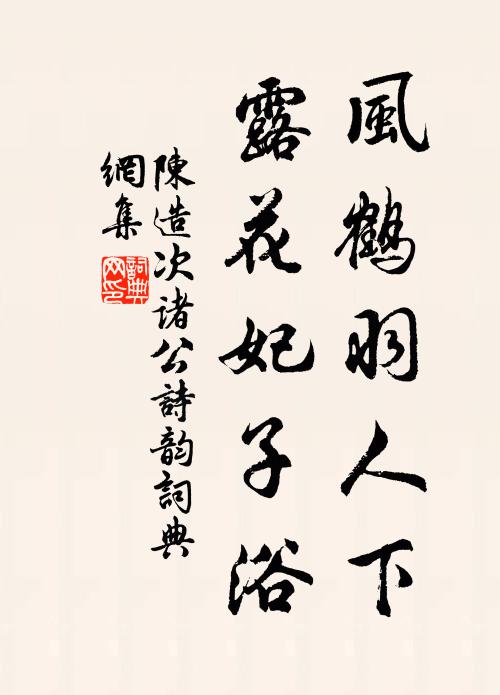 風鶴羽人下
露花妃子浴
陳造次諸公詩韵詞典
網集
詞典
网印